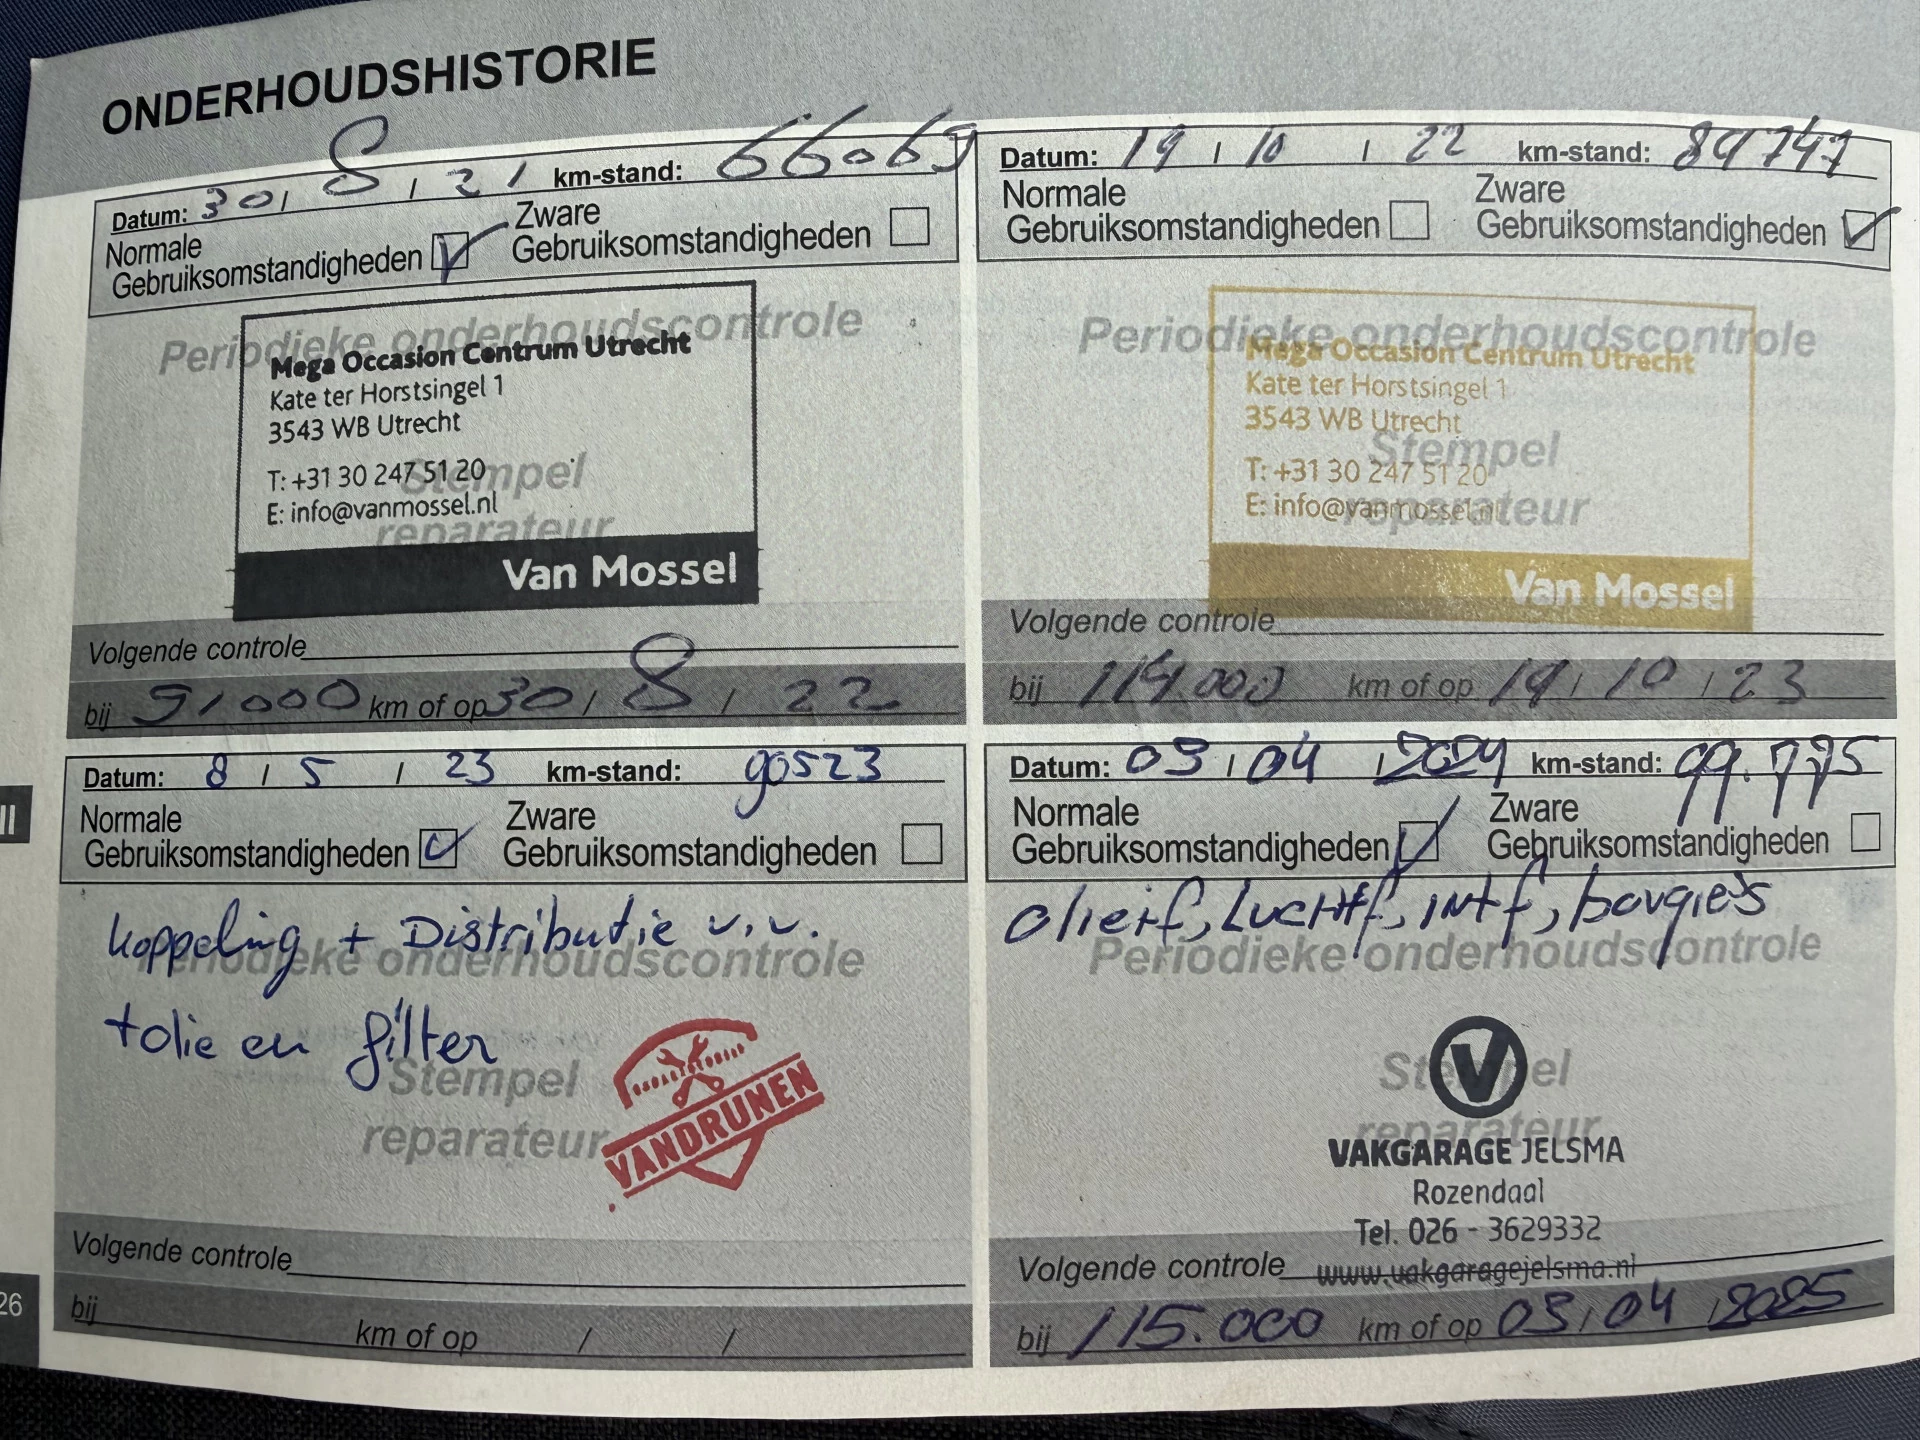 ONDERHOUDSHISTORIE
Datum: 30 / 8 / 21 km-stand: 66069
Normale Gebruiksomstandigheden Zware Gebruiksomstandigheden
Periodieke onderhoudscontrole
Mega Occasion Centrum Utrecht
Kate ter Horstsingel 1
3543 WB Utrecht
Stempel
T: +31 30 247 51 20
E: info@vanmossel.nl
reparateur
Van Mossel
Volgende controle
bij 91000 km of op 30 / 8 / 22
Datum: 19 / 10 / 22 km-stand: 89747
Normale Gebruiksomstandigheden Zware Gebruiksomstandigheden
Periodieke onderhoudscontrole
Mega Occasion Centrum Utrecht
Kate ter Horstsingel 1
3543 WB Utrecht
Stempel
T: +31 30 247 51 20
E: info@vanmossel.nl
reparateur
Van Mossel
Volgende controle
bij 114.000 km of op 19 / 10 / 23
II
Datum: 8 / 5 / 23 km-stand: 90523
Normale Gebruiksomstandigheden Zware Gebruiksomstandigheden
koppeling + Distributie v.v.
Periodieke onderhoudscontrole
+olie en filter
Stempel
reparateur
VANDRUNEN
Volgende controle
bij km of op / /
Datum: 03 / 04 / 2024 km-stand: 99.775
Normale Gebruiksomstandigheden Zware Gebruiksomstandigheden
olief, Luchtf, intf, bougies
Periodieke onderhoudscontrole
Stempel
V
reparateur
VAKGARAGE JELSMA
Rozendaal
Tel. 026 - 3629332
Volgende controle www.vakgaragejelsma.nl
bij 115.000 km of op 03 / 04 / 2025
26